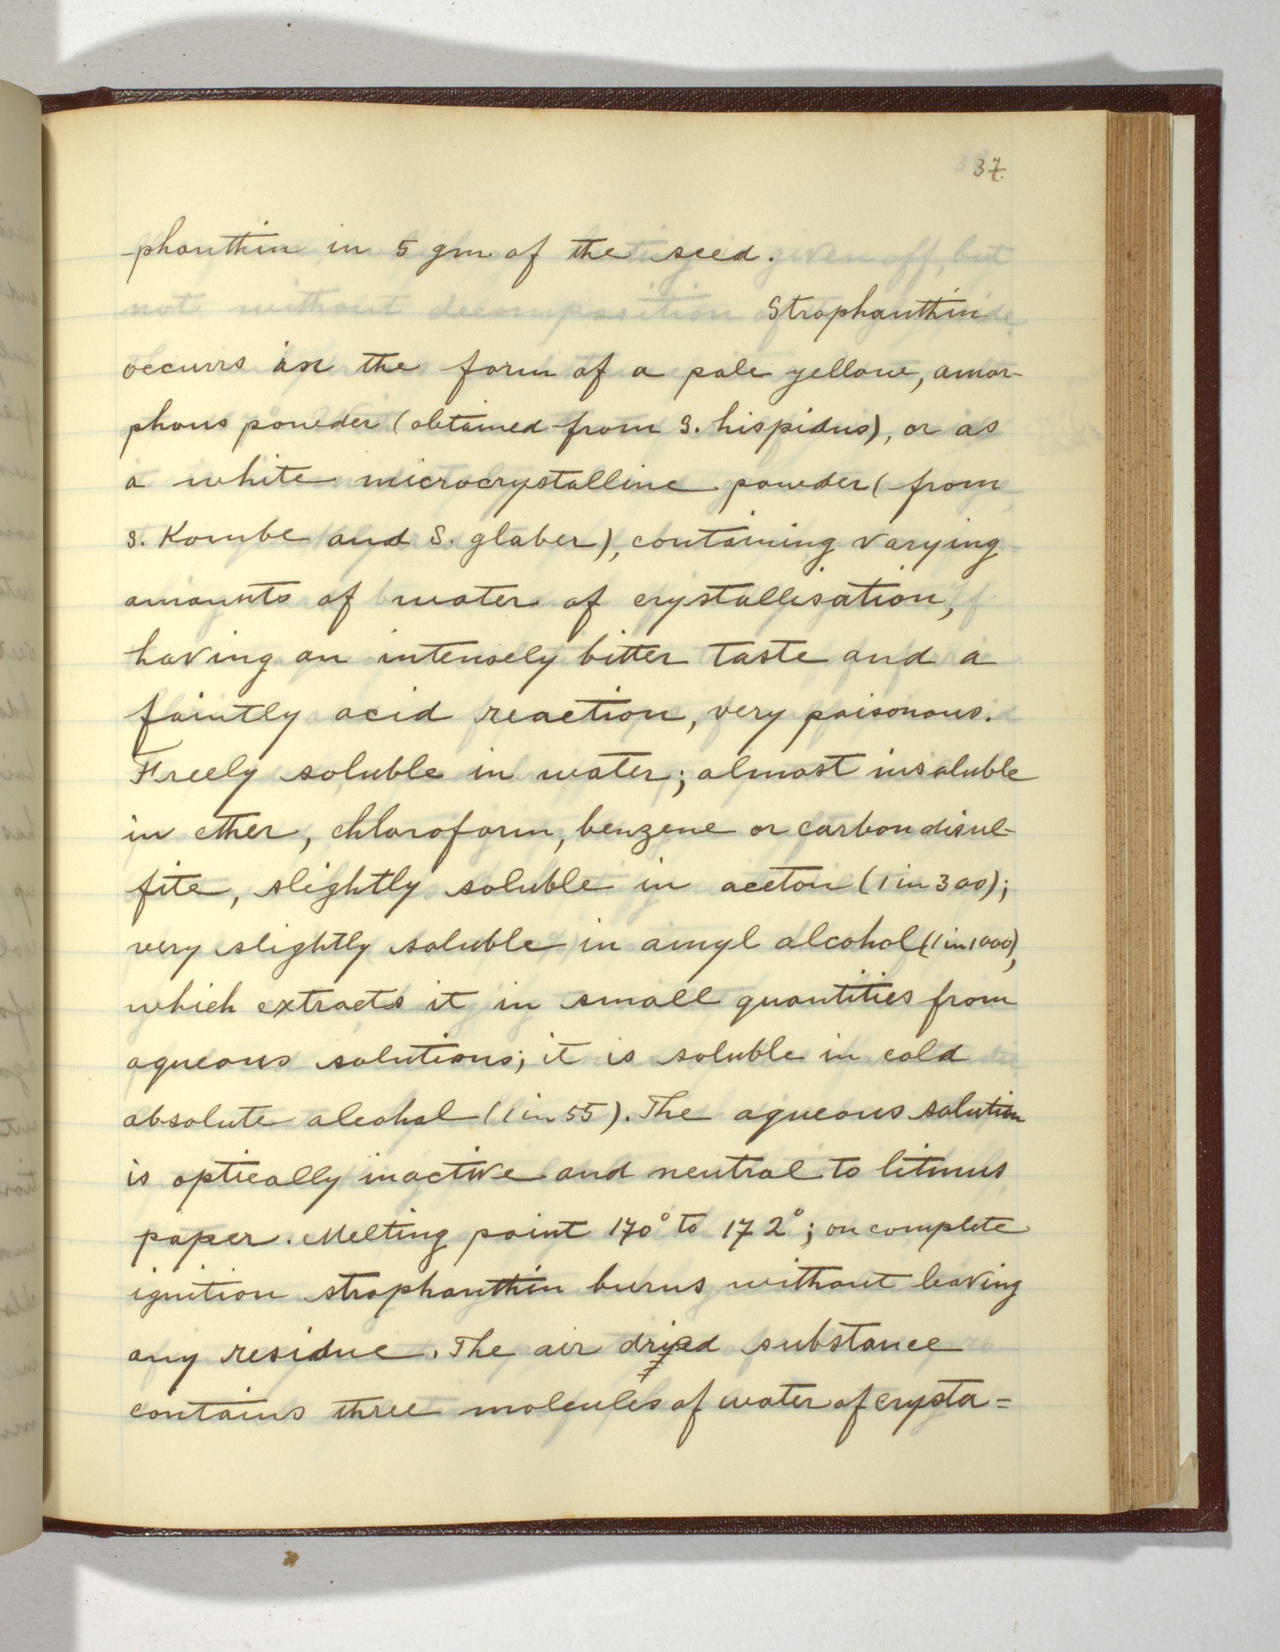 37.
-phanthin in 5 gm of the seed.
Strophanthin
occurrs in the form of a pale yellow, amor-
phous powder (obtained from S. hispidus), or as
a white microcrystalline powder (from
S. Kombe and S. glaber), containing varying
amounts of water of crystallisation,
having an intensely bitter taste and a
faintly acid reaction, very poisonous.
Freely soluble in water; almost insoluble
in ether, chloroform, benzene or carbon disul-
fite, slightly soluble in aceton (1 in 300);
very slightly soluble in amyl alcohol (1 in 1000),
which extracts it in small quantities from
aqueous solutions; it is soluble in cold
absolute alcohol (1 in 55). The aqueous solution
is optically inactive and neutral to litmus
paper. Melting point 170° to 172°; on complete
ignition strophanthin burns without leaving
any residue. The air dried substance
contains three molcules of water of crysta=